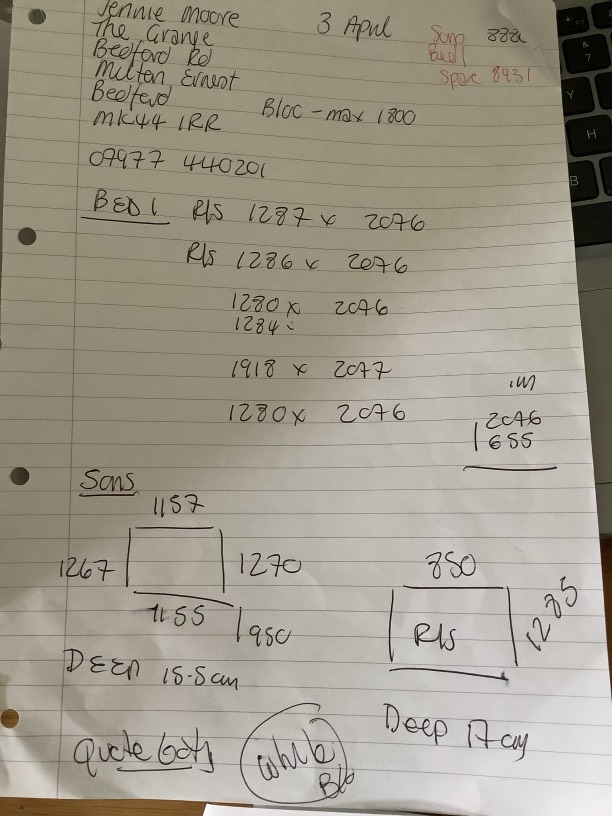 Jennie Moore
3 April
The Grange
Bedford Rd
Milton Ernest
Bedford
MK44 1RR
Sons 888
Bed 1
Spare 8931
Bloc - max 1800
07977 440201
BED 1 R/S 1287 x 2076
R/s 1286 x 2076
1280 x 2076
1284 x
1918 x 2077
1280 x 2076
2046
1655
Sons
1157
1267
1270
1155
1950
DEEP 15.5cm
850
R/S
1285
Deep 17cm
Quote both
White
Blo